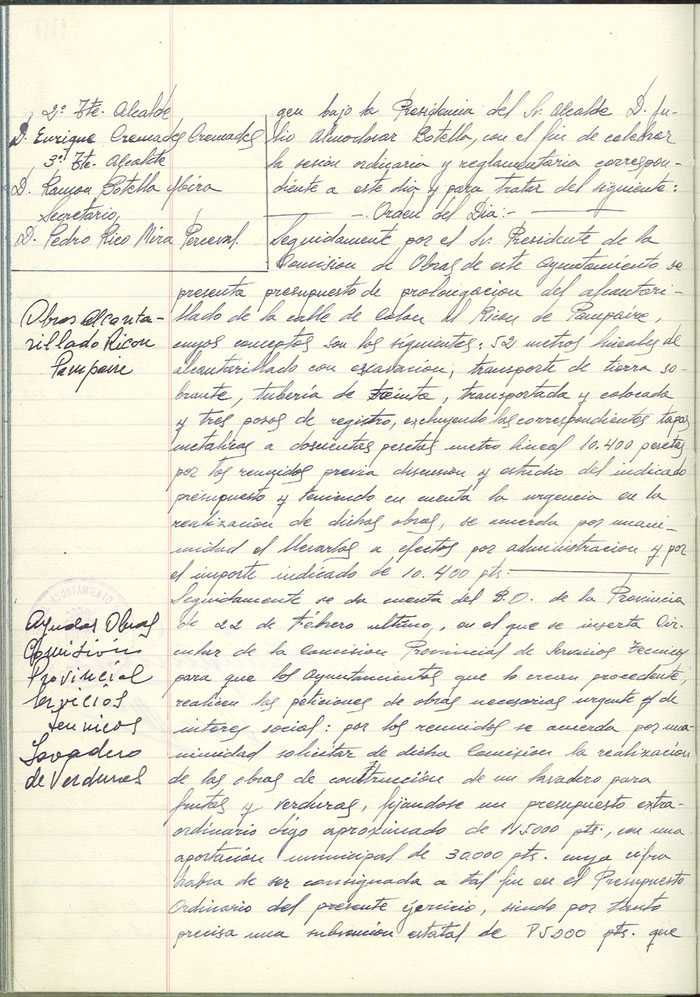 2º Tte. Alcalde
D. Enrique Cremades Cremades
3er Tte. Alcalde
D. Ramon Botella Mira
Secretario,
D. Pedro Rico Mira Perceval.
gen bajo la Presidencia del Sr. Alcalde D. Ju-
lio Almodovar Botella, con el fin de celebrar
la sesión ordinaria y reglamentaria correspon-
diente a este dia y para tratar del siguiente:
-. Orden del Dia:-
Seguidamente por el Sr. Presidente de la
Comision de Obras de este Ayuntamiento se
presenta presupuesto de prolongacion del alcantari-
llado de la calle de Colon al Ricon de Pampaire,
cuyos conceptos son los siguientes: 52 metros lineales de
alcantarillado con excavacion, transporte de tierra so-
brante, tubería de treinta, transportada y colocada
y tres posos de registro, excluyendo las correspondientes tapas
metalicas a doscientas pesetas metro lineal 10.400 pesetas
por los reunidos previa discusion y estudio del indicado
presupuesto y teniendo en cuenta la urgencia en la
realización de dichas obras, se acuerda por unani-
midad el llevarlas a efectos por administracion y por
el importe indicado de 10.400 pts.
Obras alcanta-
rillado Ricon
Pampaire
Seguidamente se da cuenta del B.O. de la Provincia
de 22 de Febrero ultimo, en el que se inserta Cir-
cular de la Comision Provincial de Servicios Tecnicos
para que los Ayuntamientos que lo crean procedente,
realicen las peticiones de obras necesarias urgente y de
interes social: por los reunidos se acuerda por una-
nimidad solicitar de dicha Comision la realización
de las obras de construcción de un lavadero para
frutas y verduras, fijandose un presupuesto extra-
ordinario digo aproximado de 115000 pts., con una
aportación municipal de 30.000 pts. cuya cifra
habra de ser consignada a tal fin en el Presupuesto
Ordinario del presente ejercicio, siendo por tanto
precisa una subvencion estatal de 85.000 pts. que
AYUNTAMIENTO
Ayudas Obras
Comision
Provincial
Servicios
Tecnicos
Lavadero
de Verduras